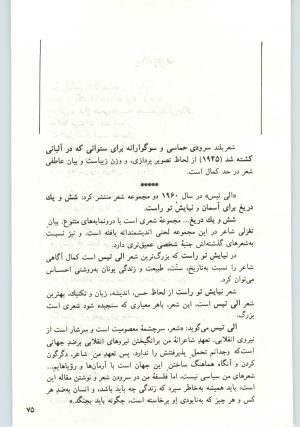 شعر بلند سرودی حماسی و سوگوارانه برای ستوانی که در آلبانی
کشته شد (۱۹۴۵) از لحاظ تصویر پردازی، و وزن زیباست و بیان عاطفی
شعر در حد کمال است.
*****
«الی تیس» در سال ۱۹۶۰ دو مجموعه شعر منتشر کرد: شش و یك
دریغ برای آسمان و نیایش تو راست.
شش و یك دریغ... مجموعهٔ شعری است با درونمایه‌های متنوع. بیان
تغزلی شاعر در این مجموعه لحنی اندیشمندانه یافته است. و نیز نسبت
به‌شعرهای گذشته‌اش جنبهٔ شخصی عمیق‌تری دارد.
در نیایش تو راست که بزرگ‌ترین شعر الی تیس است کمال آگاهی
شاعر را نسبت به‌تاریخ، سنت، طبیعت و زندگی یونان به‌روشنی احساس
می‌توان کرد.
شعر نیایش تو راست از لحاظ حس، اندیشه، زبان و تکنیك، بهترین
شعر الی تیس است. این شعر، باهر معیاری که سنجیده شود شعری است
بزرگ.
الی تیس می‌گوید: «شعر، سرچشمهٔ معصومیت است و سرشار است از
نیروی انقلابی. تعهدِ شاعرانهٔ من برانگیختن نیروهای انقلابی برضد جهانی
است‌که وجدانم تحمل پذیرفتنش را ندارد. پس تعهد من شاعر، دگرگون
کردن و آنگاه هماهنگ ساختن این جهان است با آرمان‌ها و رؤیاهایم...
شعرهای من سیاسی نیست. اما فلسفهٔ من در سرودن شعر و نوشتن مقاله این
است: باید همیشه به‌خاطر سپرد که زندگی چه باید باشد، و انسان به‌ضد هر
کس و هر چیز که به‌نابودی او برخاسته است، چگونه باید بجنگد.»
۷۵